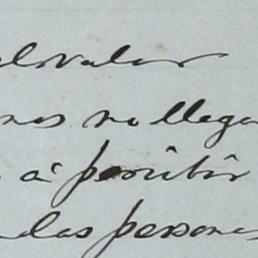 el valor
nos no llega
à permitir
las persona